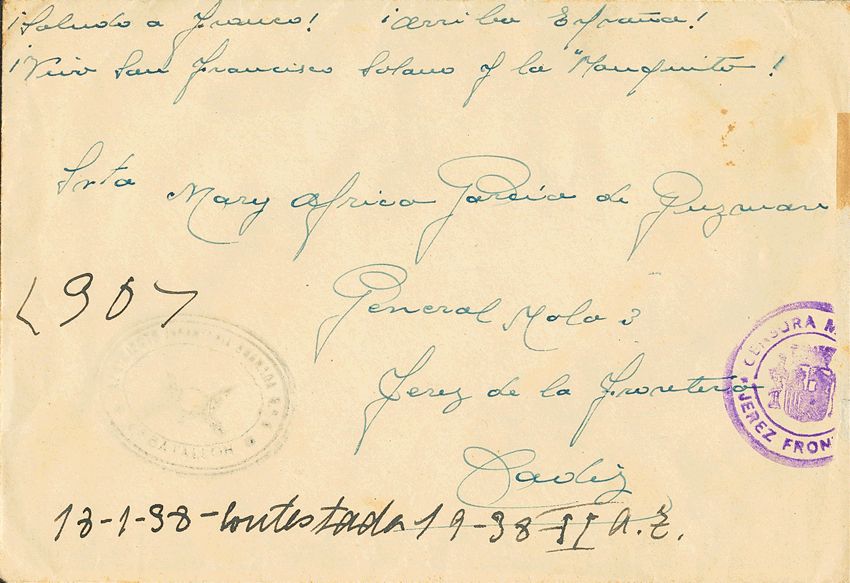 ¡Saludo a Franco! ¡Arriba España!
¡Viva San Francisco Solano y la "Manquita"!
Srta
Mary Africa García de Guzman
<90>
General Mola 3
Jerez de la Frontera
Cadiz
BATALLON
CENSURA M
JEREZ FRON
18-1-38-Contestada 19-38 II A.E.